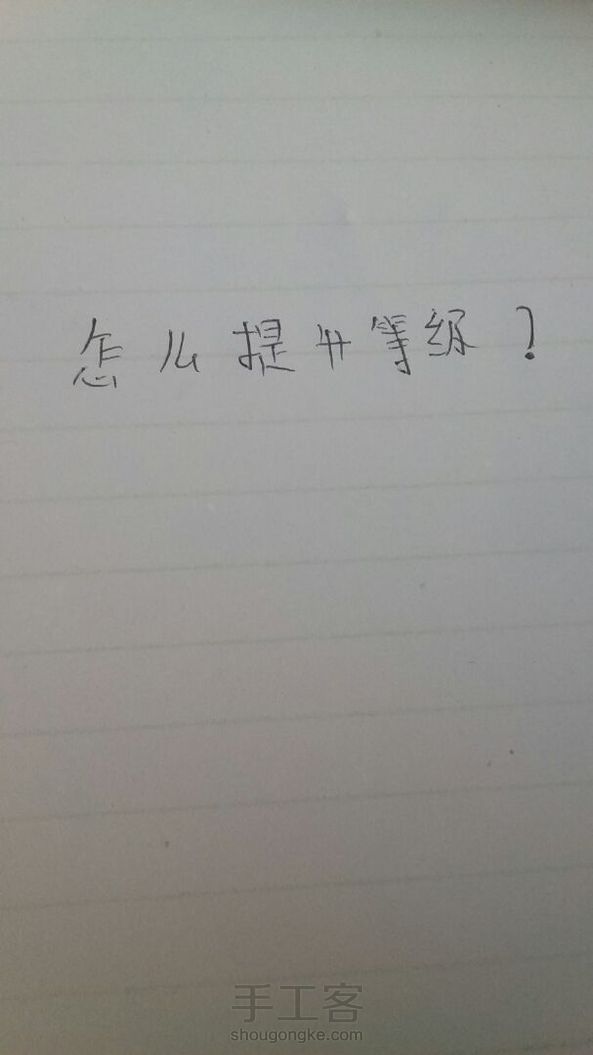 怎么提升等级？
手工客
shougongke.com